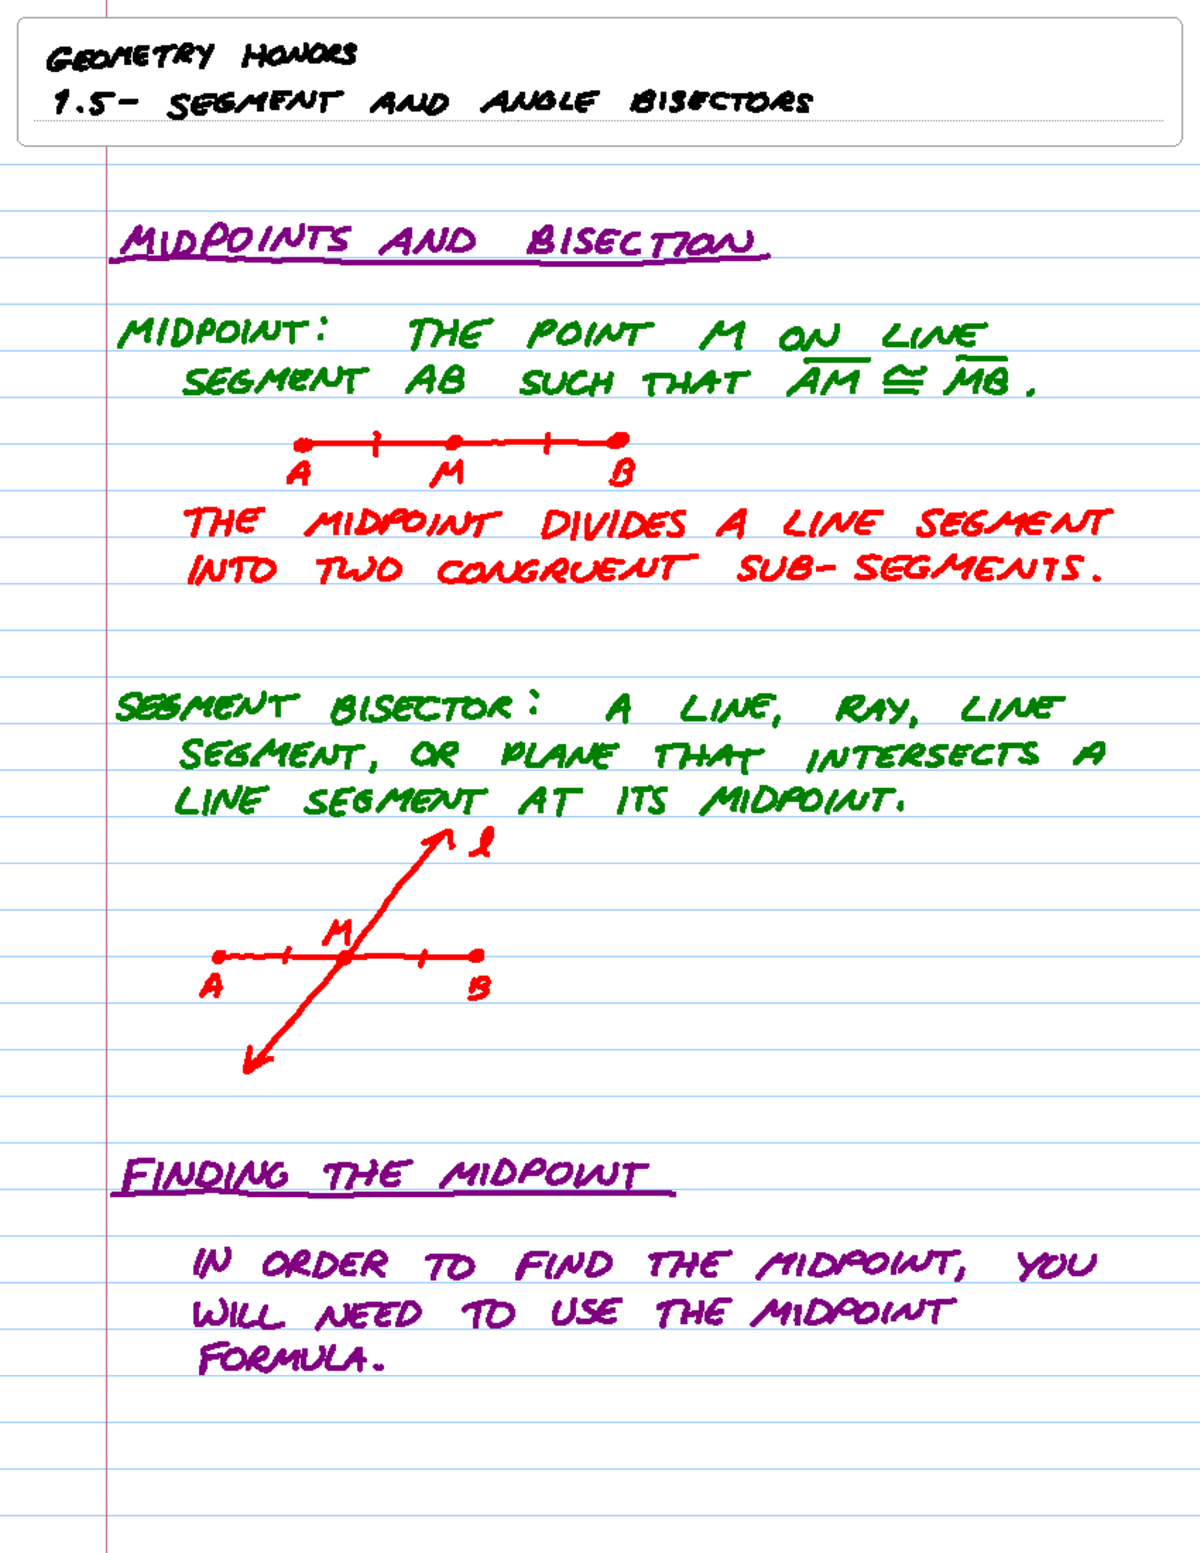 GEOMETRY HONORS
1.5- SEGMENT AND ANGLE BISECTORS
MIDPOINTS AND BISECTION
MIDPOINT: THE POINT M ON LINE
SEGMENT AB SUCH THAT A̅M̅ ≅ M̅B̅.
A M B
THE MIDPOINT DIVIDES A LINE SEGMENT
INTO TWO CONGRUENT SUB-SEGMENTS.
SEGMENT BISECTOR: A LINE, RAY, LINE
SEGMENT, OR PLANE THAT INTERSECTS A
LINE SEGMENT AT ITS MIDPOINT.
l
M
A B
FINDING THE MIDPOINT
IN ORDER TO FIND THE MIDPOINT, YOU
WILL NEED TO USE THE MIDPOINT
FORMULA.